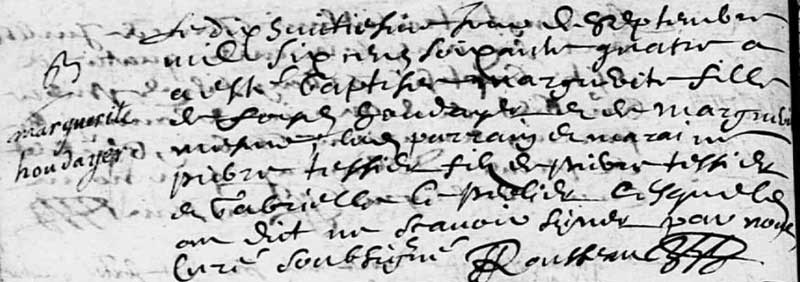 B
marguerite
houdayer
Le dix huitiesme Jour de Septembre
mille six cens soixante quatre a
a esté baptisée marguerite fille
de houdayer et de marguerite
parrain et maraine
pierre tessier fils de pierre tessier
et Gabrielle lesquels
ont dict ne scavoir signer par nous
Curé soubsigné Rousseau